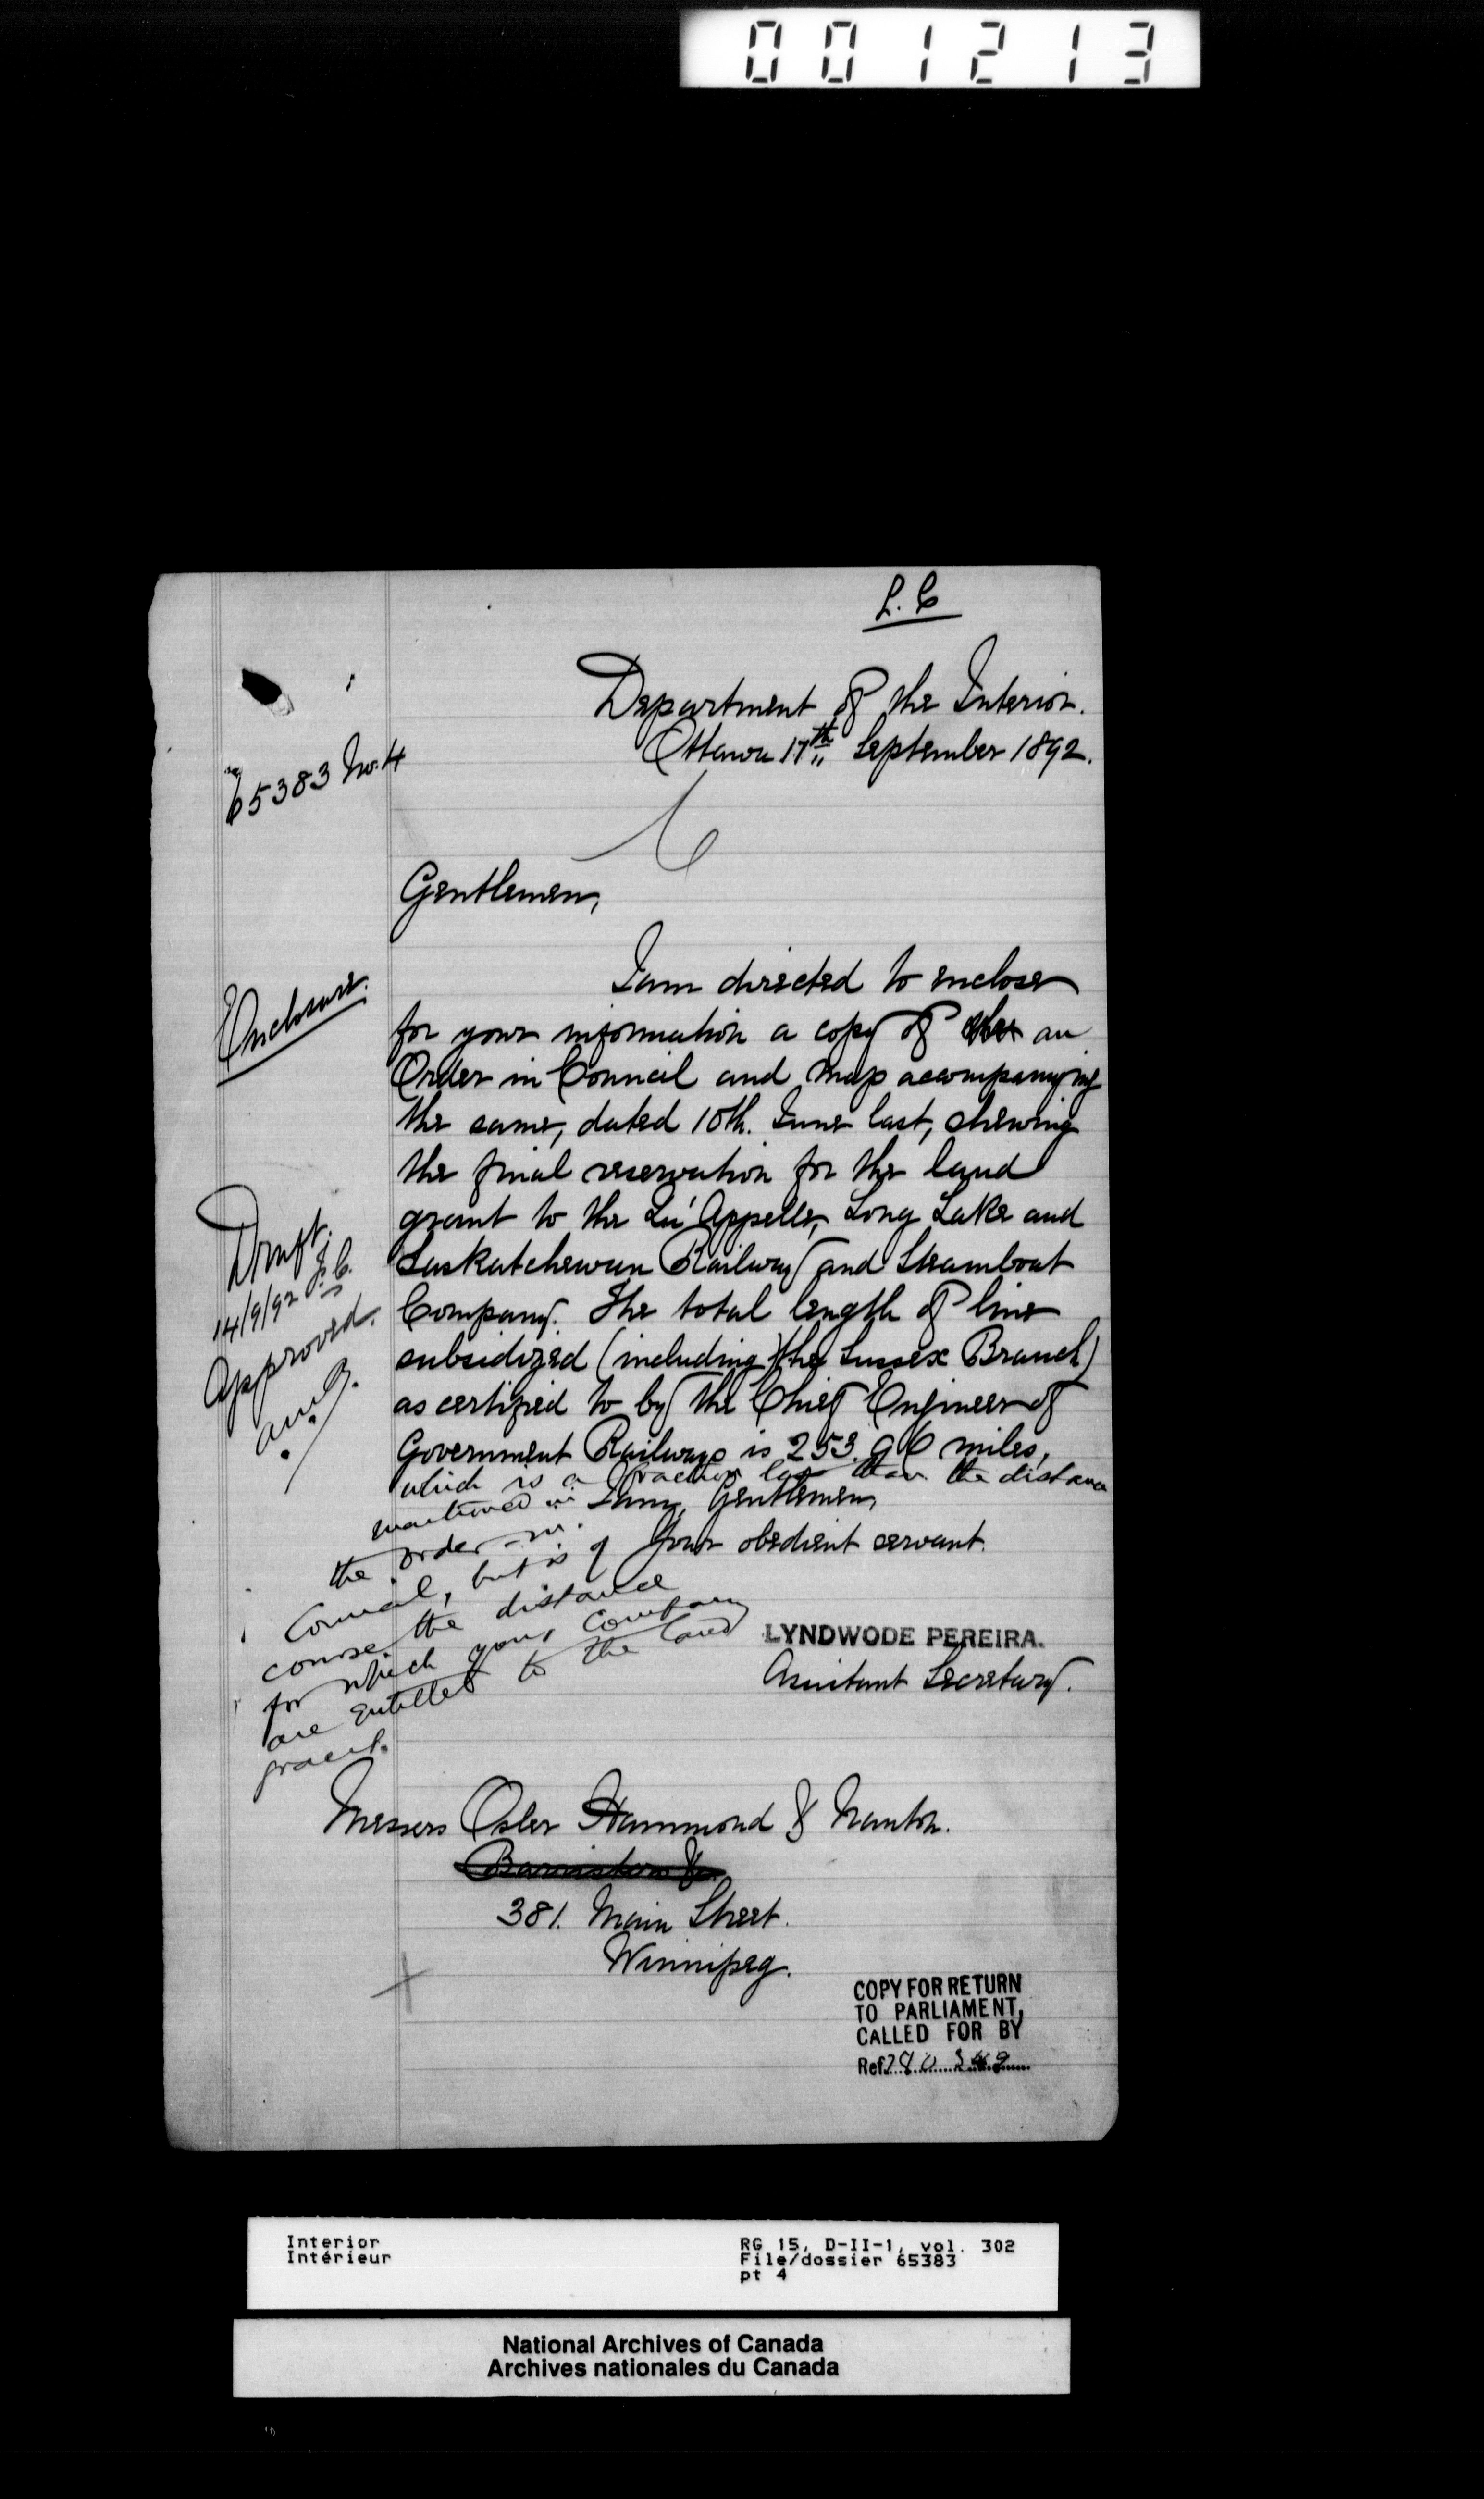 001213
L. C
Department of the Interior.
Ottawa 17th September 1892.
65383 No. 4
Gentlemen,
Enclosure.
I am directed to enclose
for your information a copy of the an
Order in Council and map accompanying
the same, dated 10th. June last, shewing
the final reservation for the land
grant to the Qu'Appelle, Long Lake and
Saskatchewan Railway and Steamboat
Company. The total length of line
subsidized (including the Sussex Branch)
as certified to by the Chief Engineer of
Government Railways is 253.96 miles,
which is a fraction less than the distance
mentioned in
the order-in-
Council, but is of
course the distance
for which your company
are entitled to the land
grant.
Draft.
14/9/92
Approved.
I am, Gentlemen,
Your obedient servant.
LYNDWODE PEREIRA.
Assistant Secretary.
Messers Osler Hammond & Nanton.
Barristers &c
381. Main Street.
Winnipeg.
COPY FOR RETURN
TO PARLIAMENT,
CALLED FOR BY
Ref.
Interior
Intérieur
RG 15, D-II-1, vol. 302
File/dossier 65383
pt 4
National Archives of Canada
Archives nationales du Canada